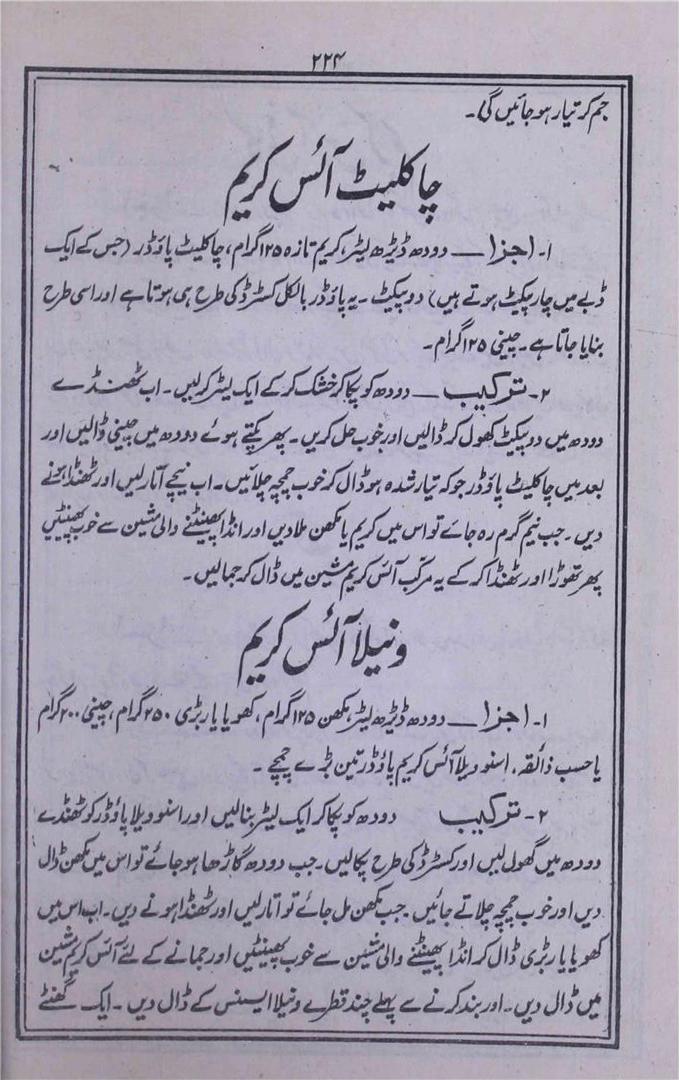 ۲۲۴
جم کر تیار ہو جائیں گی۔
چاکلیٹ آئس کریم
۱۔ اجزا — دودھ ڈیڑھ لیٹر، کریم تازہ ۱۲۵ گرام، چاکلیٹ پاؤڈر (جس کے ایک
ڈبے میں چار پیکیٹ ہوتے ہیں) دو پیکیٹ۔ یہ پاؤڈر بالکل کسٹرڈ کی طرح ہی ہوتا ہے اور اسی طرح
بنایا جاتا ہے۔ چینی ۱۲۵ گرام۔
۲۔ ترکیب — دودھ کو پکا کر خشک کر کے ایک لیٹر کر لیں۔ اب ٹھنڈے
دودھ میں دو پیکیٹ کھول کر ڈالیں اور خوب حل کریں۔ پھر پکتے ہوئے دودھ میں چینی ڈالیں اور
بعد میں چاکلیٹ پاؤڈر جو کہ تیار شدہ ہو ڈال کر خوب چمچہ چلائیں۔ اب نیچے اتار لیں اور ٹھنڈا ہونے
دیں۔ جب نیم گرم رہ جائے تو اس میں کریم یا مکھن ملا دیں اور انڈا پھینٹنے والی مشین سے خوب پھینٹیں
پھر تھوڑا اور ٹھنڈا کر کے یہ مرکب آئس کریم مشین میں ڈال کر جما لیں۔
ونیلا آئس کریم
۱۔ اجزا — دودھ ڈیڑھ لیٹر، مکھن ۱۲۵ گرام، کھویا یا ربڑی ۲۵۰ گرام، چینی ۲۰۰ گرام
یا حسب ذائقہ، اسنو ویلا آئس کریم پاؤڈر تین بڑے چمچے۔
۲۔ ترکیب دودھ کو پکا کر ایک لیٹر بنا لیں اور اسنو ویلا پاؤڈر کو ٹھنڈے
دودھ میں گھول لیں اور کسٹرڈ کی طرح پکا لیں۔ جب دودھ گاڑھا ہو جائے تو اس میں مکھن ڈال
دیں اور خوب چمچہ چلاتے جائیں۔ جب مکھن مل جائے تو اتار لیں اور ٹھنڈا ہونے دیں۔ اب اس میں
کھویا یا ربڑی ڈال کر انڈا پھینٹنے والی مشین سے خوب پھینٹیں اور جمانے کے لئے آئس کریم مشین
میں ڈال دیں۔ اور بند کرنے سے پہلے چند قطرے ونیلا ایسنس کے ڈال دیں۔ ایک گھنٹے